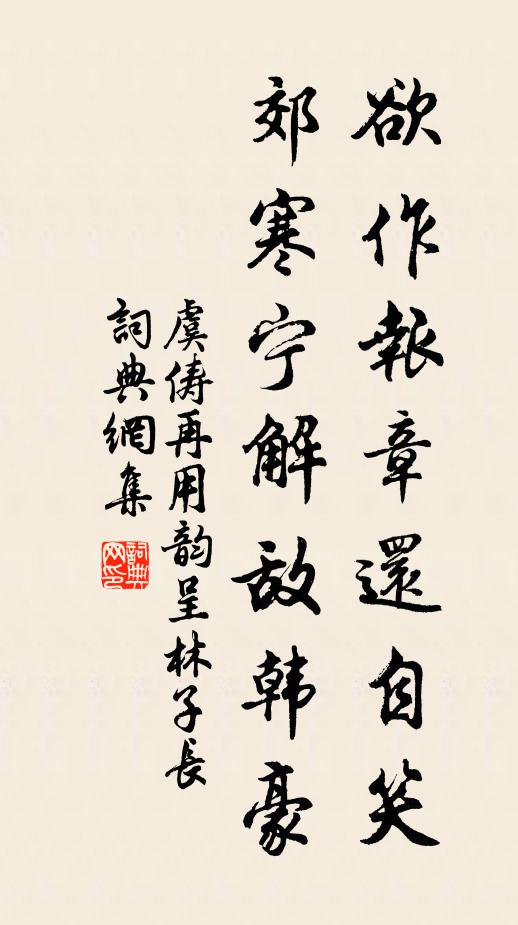 欲作報章還自笑
郊寒宁解敌韩豪
虞俦再用韵呈林子長
詞典網集
詞典网印